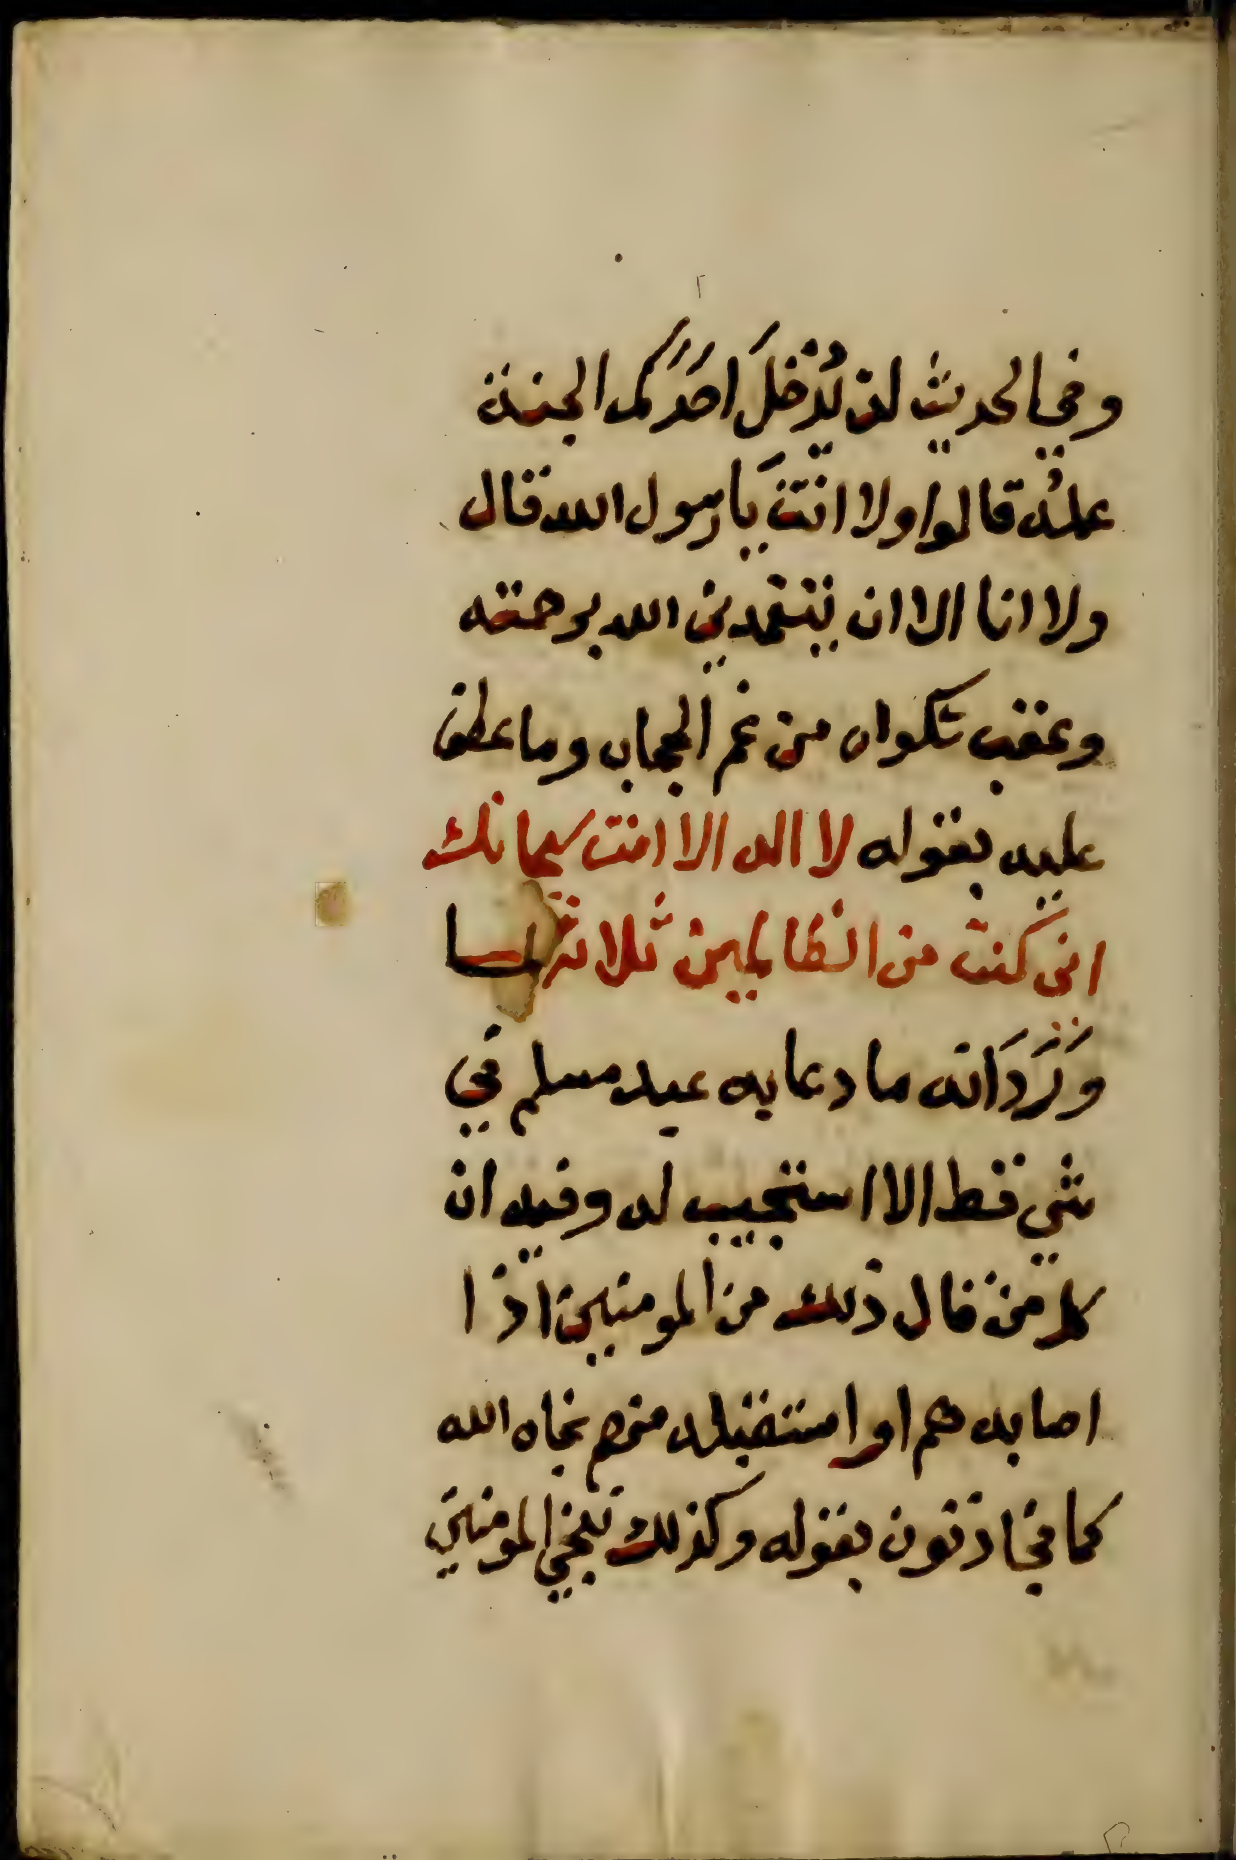 وفي الحديث لن يُدْخِلَ احَدَكُم الجنة
عملُه قالوا ولا انتَ يا رسول الله قال
ولا انا الا ان يتغمدني الله برحمته
وعقب شكواه من غم الحجاب وما عطف
عليه بقوله لا اله الا انت سبحانك
اني كنت من الظالمين ثلاثا لما
وَرَدَ انه ما دعا به عبد مسلم في
شي قط الا استجيب له وفيه ان
كل من قال ذلك من المومنين اذا
اصابه هم او استقبله منهم نجاه الله
كما نجا ذنون بقوله وكذلك ننجي المومنين